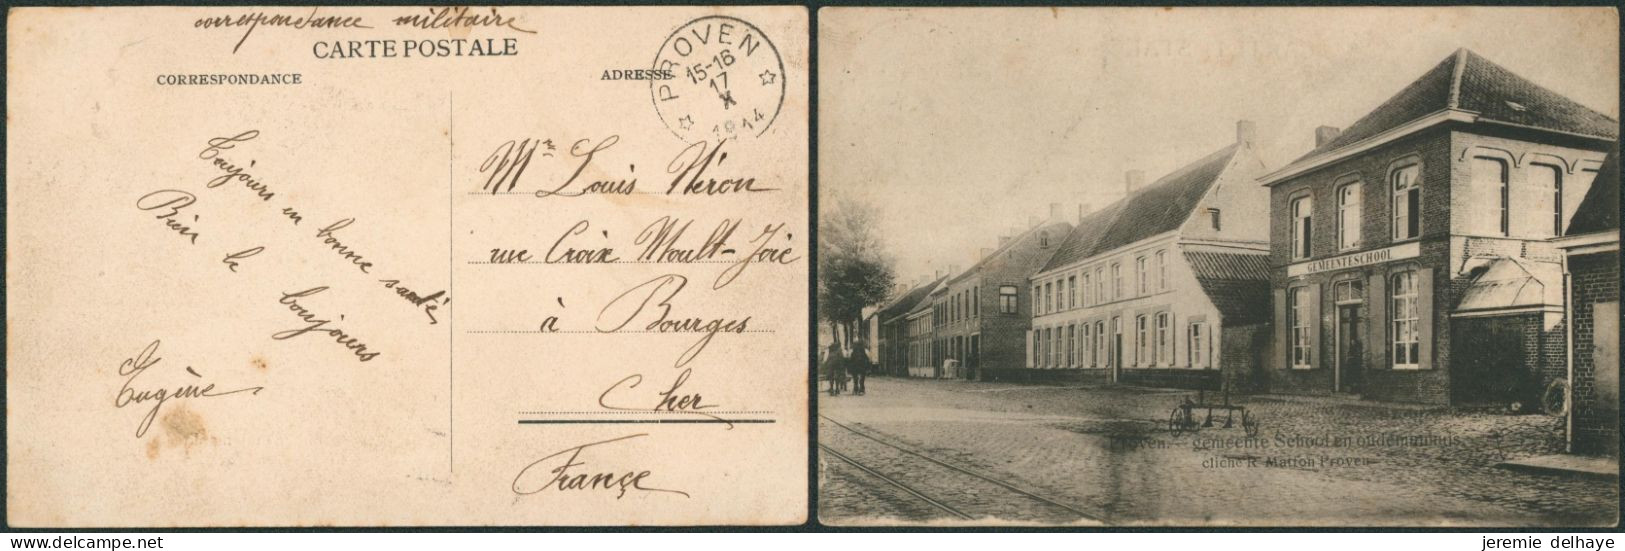 correspondance militaire
CARTE POSTALE
CORRESPONDANCE
ADRESSE
PROVEN
15-16
17
X
1914
Toujours en bonne santé,
Bien le
boujours
Eugène
Mr Louis Néron
rue Croix Moult-Joie
à Bourges
Cher
France
GEMEENTESCHOOL
Proven. - gemeente School en oudemanhuis
cliché R Matton Proven
jeremie delhaye